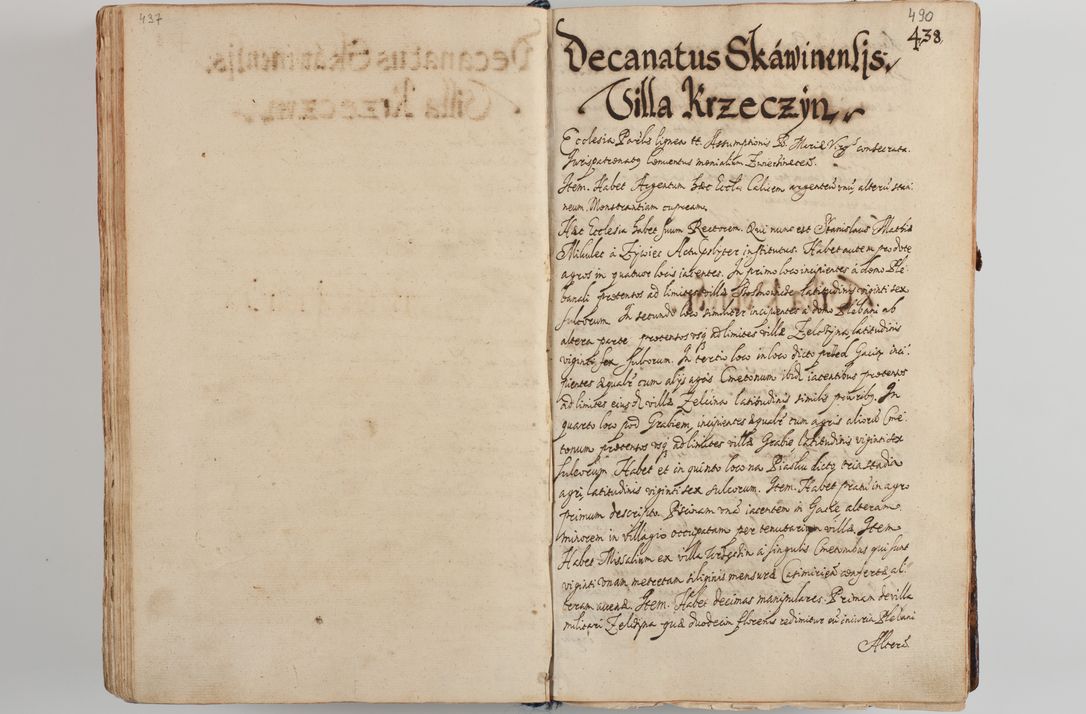 437
490
438
Decanatus Skáwinensis.
Villa Krzeczÿn
Ecclesia Parlis lignea tt. Assumptionis B. Mariæ Virg. consecrata.
Jurispatronatq Conventus monialium Zwierzinecen.
Item. Habet Argentum hæc Eccla Calicem argenteũ unũ alterũ stan:
neum. Monstrantiam cupream.
Hæc Ecclesia habet suum Rectorem. Qui nunc est Stanislaus Mathiæ
Mikulec à Zywiec Actu psbyter institutus. Habet autem pro dote
agros in quatuor locis iacentes. In primo loco incipientes à domo Ple
banali protentos ad limites villæ latitudinis viginti sex
sulcorum. In secundo loco similiter incipientes à domo Plebani ab
altera parte protentos usq ad limites villæ Zelczyna, latitudinis
viginti sex sulcorum. In tertio loco in loco dicto przed Gacią inci:
pientes æqualr cum alijs agris Cmetonum ibid. iacentibus protentos
ad limites eiusd villæ Zelcina latitudinis similis priorib9. In
quarto loco pod Grabiem, incipientes æqualr cum agris aliorũ Cme
tonum protentos usq ad limites villæ Grabie, latitudinis viginti sex
sulcorum. Habet et in quinto loco na Piasku dicto tria stadia
agri, latitudinis viginti sex sulcorum. Item. Habet pratũ in agro
primum descripto. Piscinam unã iacentem in alteram
minorem in villagio occupatam per tenutarium villæ. Item
Habet Missalium ex villa à singulis Cmetonibus qui sunt
viginti unam metretam siliginis mensuræ Casimirien conferre, al:
teram avenæ. Item. Habet decimas manipulares. Primam de villa
militari Zelczÿna quæ duodecim florenis redimitur cũ iniuria Plebani
Alterã